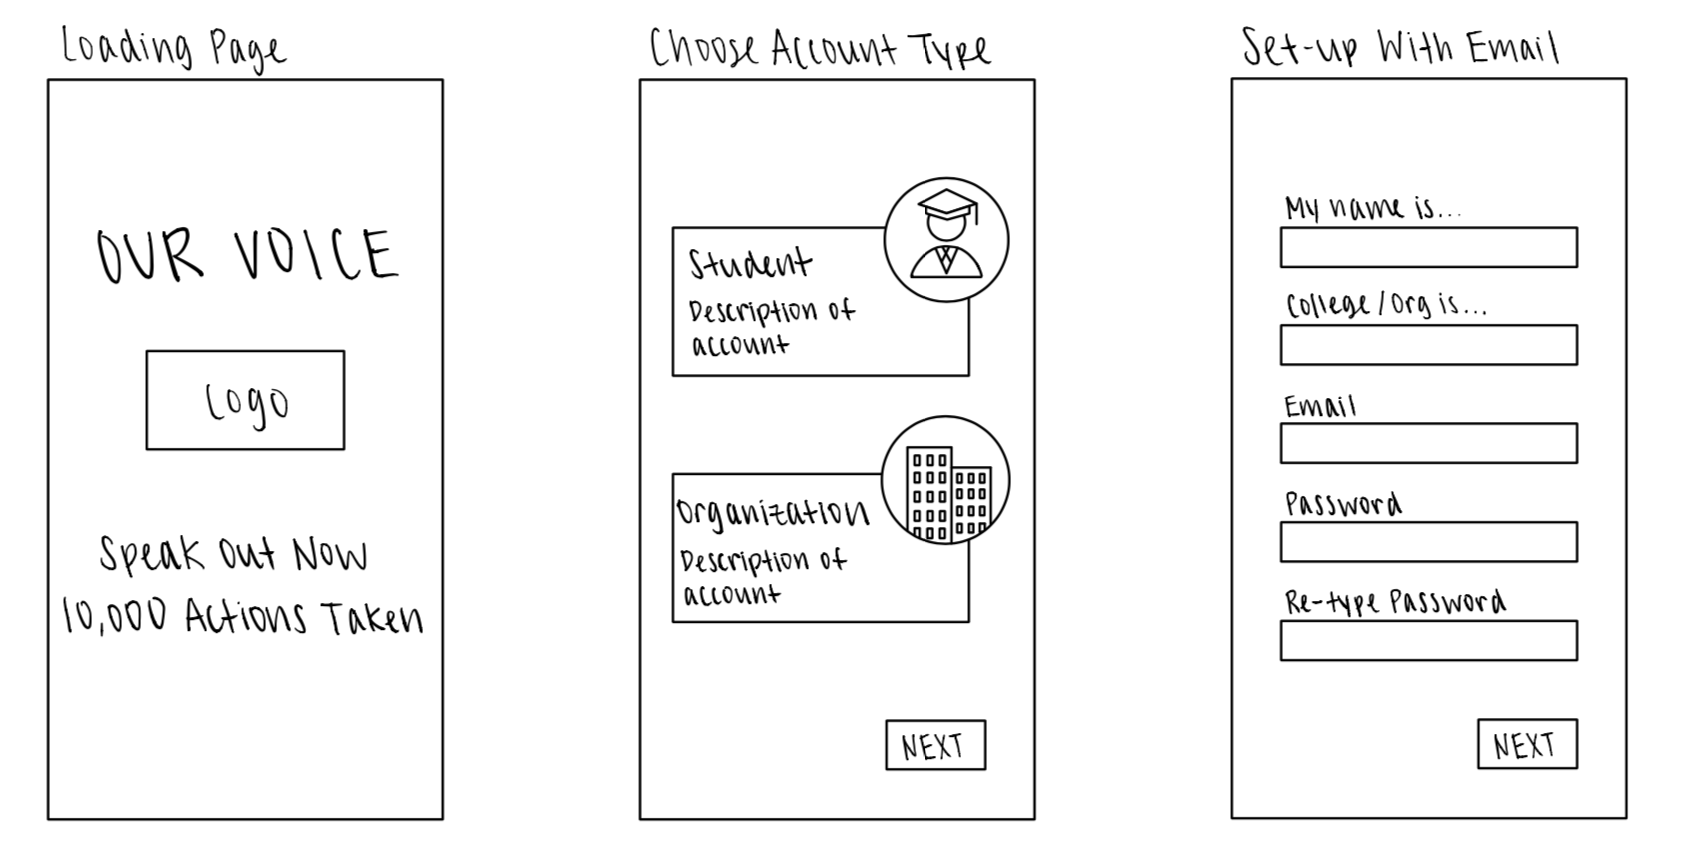 Loading Page
OUR VOICE
Logo
Speak Out Now
10,000 Actions Taken
Choose Account Type
Student
Description of
account
Organization
Description of
account
NEXT
Set-up With Email
My name is...
College/Org is...
Email
Password
Re-type Password
NEXT